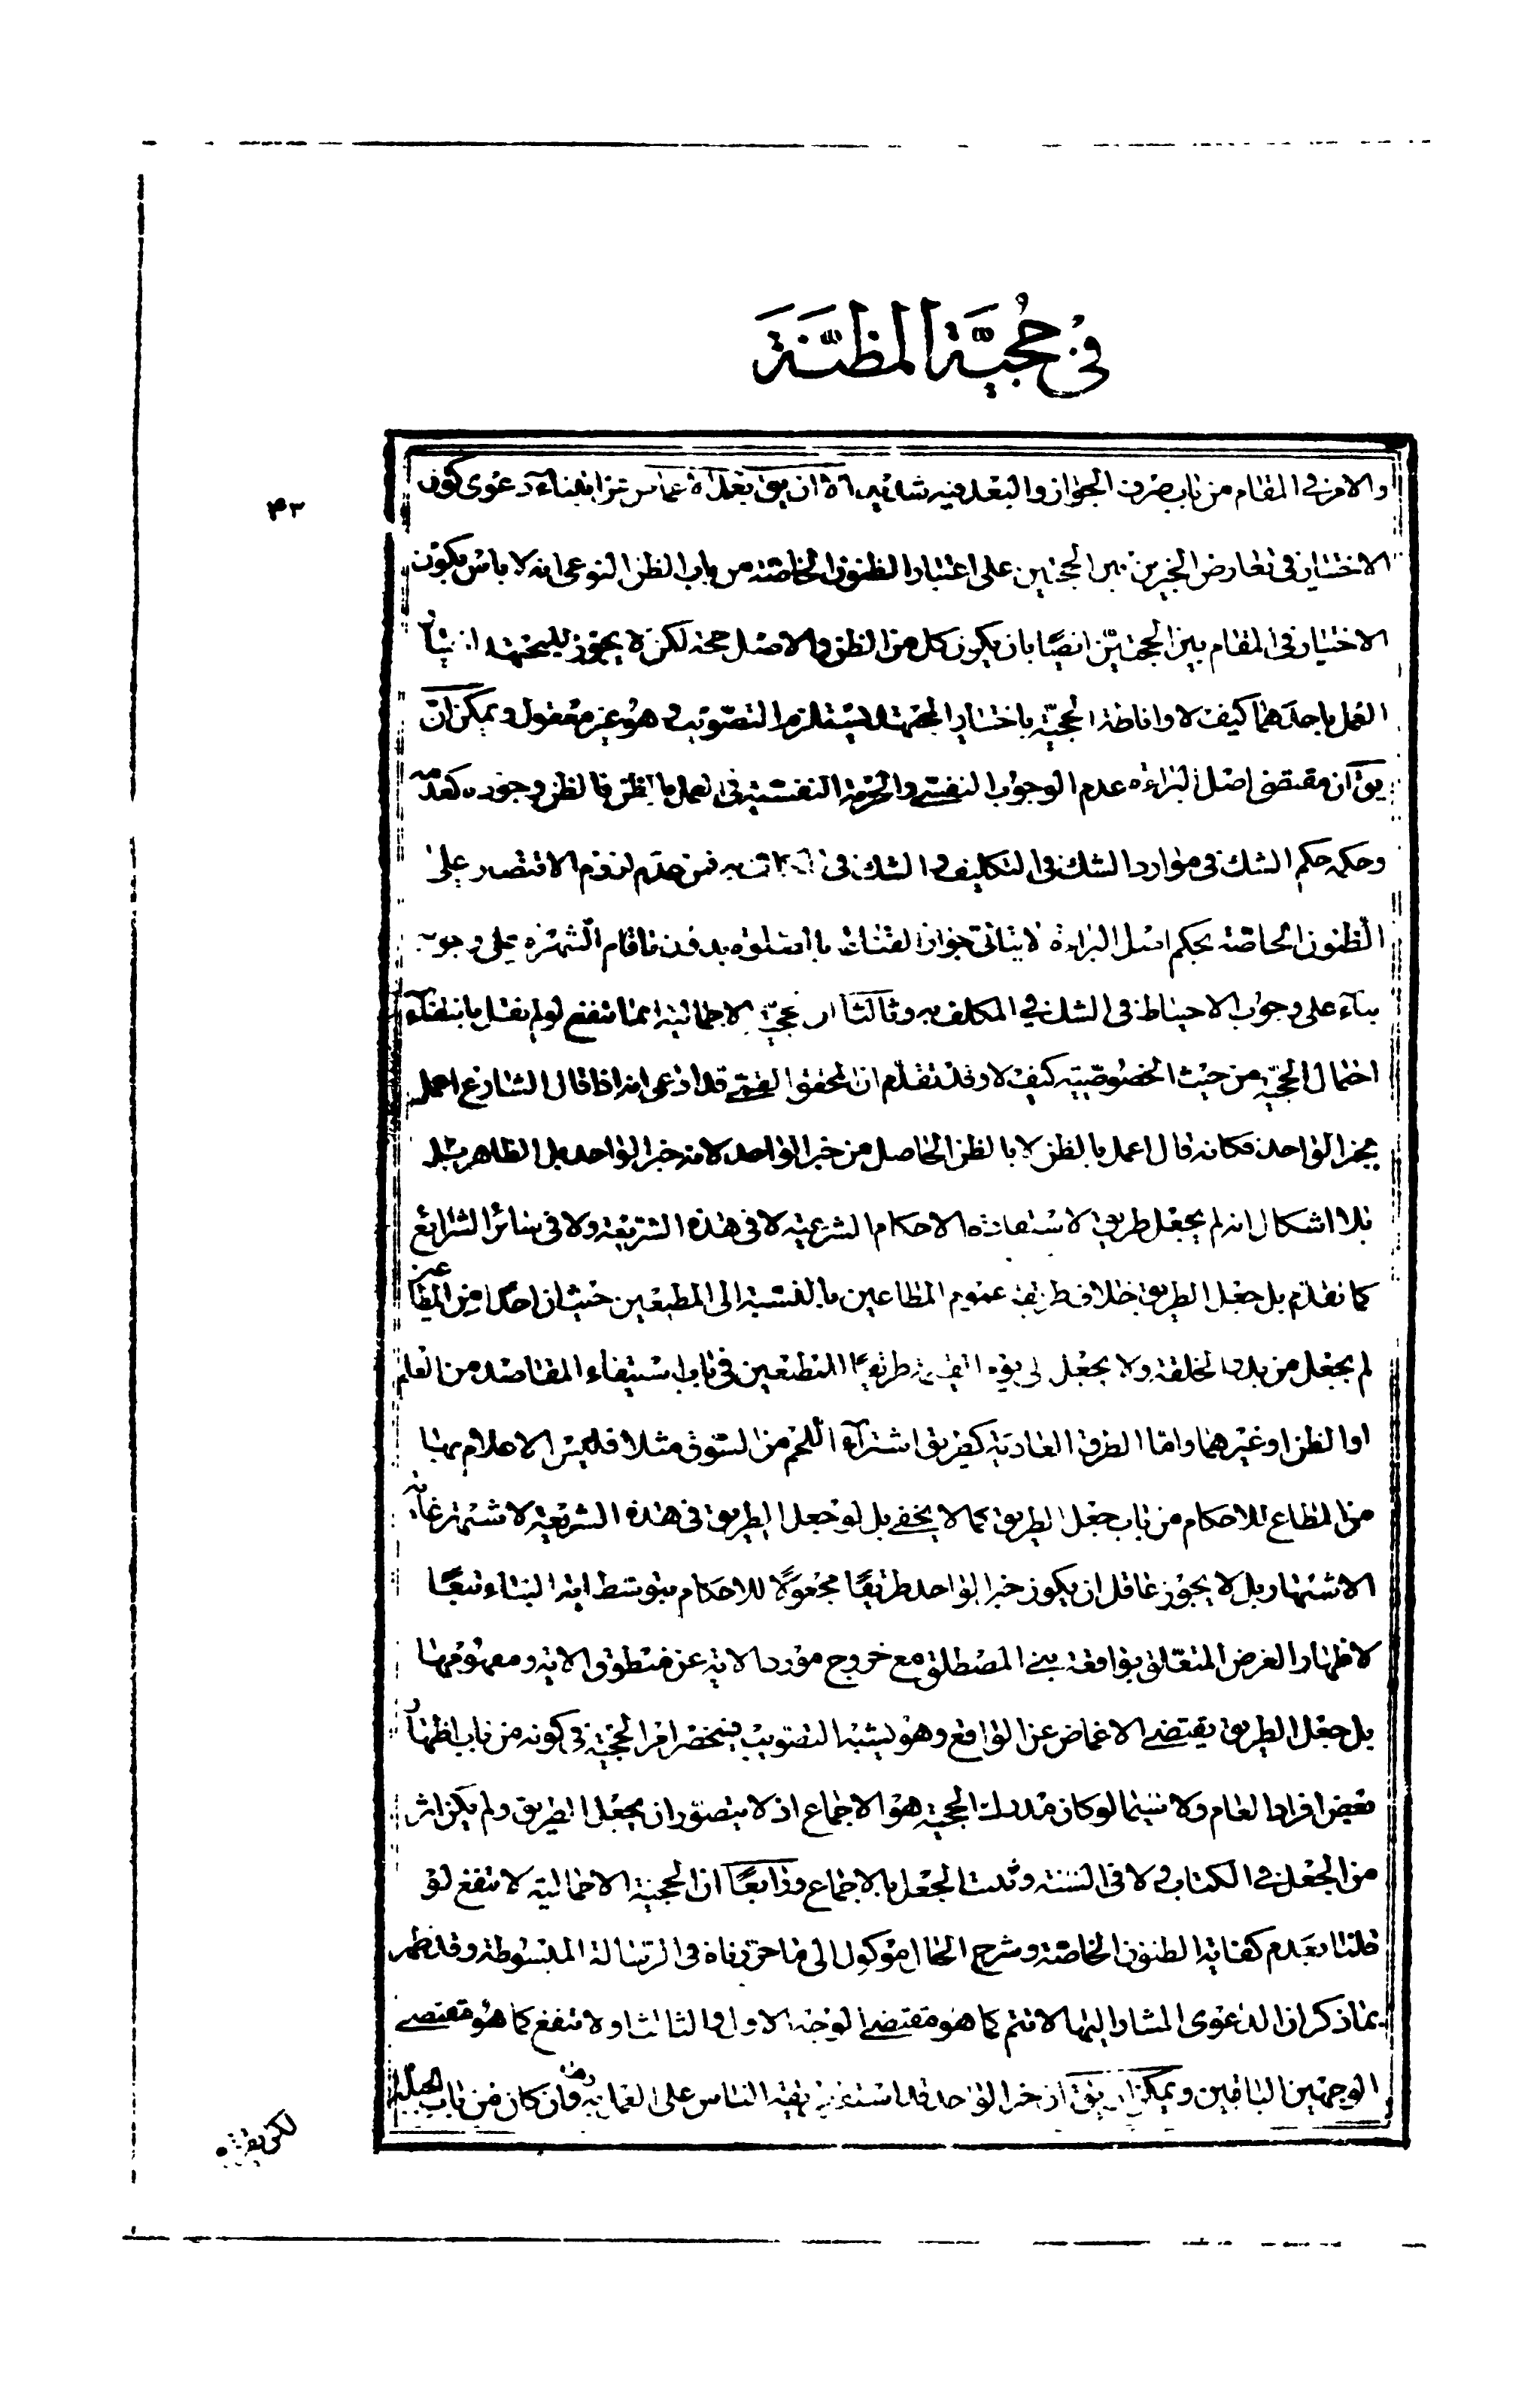 في حجية المظنة
٤٣
والامر في المقام من باب صرف الجواز والتعبد فيه شائبة دعوى كون
الاختيار في تعارض الخبرين بين الحجتين على اعتبار الظنون الخاصة من باب الظن النوعى انه لا باس بكون
الاختيار في المقام بين الحجتين ايضًا بان يكون كل من الظن والاصل حجة لكن لا يجوز للمجتهد
العمل باحدهما كيف لا واناطة الحجية باختيار المجتهد يستلزم التصويب وهو غير معقول ويمكن ان
يق ان مقتضى اصل البراءة عدم الوجوب النفسى والحرمة النفسية في العمل بالظن فالظن وجوده كعدمه
وحكمه حكم الشك في موارد الشك في التكليف والشك في لزوم الاقتصار على
الظنون الخاصة بحكم اصل البراءة لا ينافي جواز ما قام الشهرة على وجوبه
بناء على وجوب الاحتياط في الشك في المكلف به وثالثا ان حجية الاجمالية انما تنفع لو لم نقل بانتفاء
احتمال الحجية من حيث الخصوصية كيف لا وقد تقدم ان المحقق القمى قد ادعى انه اذا قال الشارع اعمل
بخبر الواحد فكانه قال اعمل بالظن لا بالظن الحاصل من خبر الواحد لانه خبر الواحد بل الظاهر بل
بلا اشكال انه لم يجعل طريق لاستفادة الاحكام الشرعية لا في هذه الشريعة ولا في سائر الشرائع
كما تقدم بل جعل الطريق خلاف طريقة عموم المطاعين بالنسبة الى المطيعين حيث ان احدًا من المطاعين
لم يجعل من بدو الخلقة ولا يجعل الى يوم القيمة طريقًا للمطيعين في باب استيفاء المقاصد من العلم
او الظن او غيرهما واما الطرق العادية كطريق اشتراء اللحم من السوق مثلا فليس الاعلام بها
من المطاع للاحكام من باب جعل الطريق كما لا يخفى بل لو جعل الطريق في هذه الشريعة لاشتهر غاية
الاشتهار بل لا يجوز عاقل ان يكون خبر الواحد طريقًا مجعولًا للاحكام بتوسط اية النباء تبعًا
لاظهار الغرض المتعلق بواقعة بنى المصطلق مع خروج مورد الاية عن منطوق الاية ومفهومها
بل جعل الطريق يقتضى الاغماض عن الواقع وهو يشبه التصويب فينحصر امر الحجية في كونه من باب اظهار
بعض افراد العام ولا سيما لو كان مدرك الحجية هو الاجماع اذ لا يتصور ان يجعل الطريق ولم يكن اثر
من الجعل في الكتاب ولا في السنة وثبت الجعل بالاجماع ورابعًا ان الحجية الاجمالية لا تنفع لو
قلنا بعدم كفاية الظنون الخاصة وشرح الحال موكول الى ما حررناه في الرسالة المبسوطة وقد ظهر
بما ذكر ان الدعوى المشار اليها لا تتم كما هو مقتضى الوجه الاول والثالث او لا تنفع كما هو مقتضى
الوجهين الباقيين ويمكن ان يق ان خبر الواحد قد استقر بقية الناس على العمل به وان كان من باب الجبلة